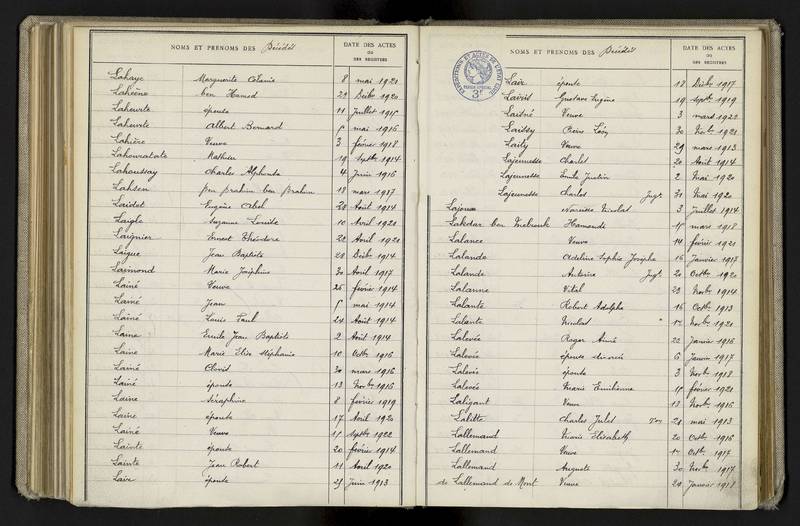 NOMS ET PRENOMS DES Décédés
DATE DES ACTES
OU
DES REGISTRES
Lahaye Marguerite 8 mai 1920
Lahcène ben Hamed 29 Décbre 1920
Laheurte épouse 11 Juillet 1915
Laheurte Albert Bernard 5 mai 1916
Lahière Veuve 3 février 1918
Mathieu 19 Septbre 1914
Lahoussay Charles Alphonse 4 Juin 1916
Lahsen ben Brahim ben Brahim 18 mars 1917
Laidet Eugène Abel 28 Août 1914
Laigle Suzanne Louise 10 Avril 1920
Laignier Ernest Théodore 20 Avril 1920
Laigue Jean Baptiste 28 Décbre 1914
Laimond Marie Joséphine 30 Avril 1917
Lainé Veuve 25 février 1914
Lainé Jean 5 mai 1914
Lainé Louis Paul 24 Août 1914
Laine Emile Jean Baptiste 2 Août 1914
Laine Marie Elise Stéphanie 10 Octbre 1916
Lainé Clovis 30 mars 1916
Lainé épouse 13 Novbre 1916
Laine Séraphine 8 février 1919
Laine épouse 17 Avril 1920
Lainé Veuve Septbre 1922
Lainte épouse 20 février 1914
Lainte Jean Robert 11 Avril 1920
Laire épouse 25 Juin 1913
NOMS ET PRENOMS DES Décédés
DATE DES ACTES
OU
DES REGISTRES
Lair épouse 18 Décbre 1917
Gustave Eugène 19 Septbre 1919
Laisné Veuve 3 mars 1921
Laissy 30 1921
Laily Veuve 29 mars 1913
Lajeunesse Charles 20 Août 1914
Lajeunesse Emile Justin 2 Mai 1920
Lajeunesse Charles Jugt 31 Mai 1920
Lajoux Narcisse Nicolas 3 Juillet 1914
Lakdar ben Mebrouk Hamouda 15 mars 1918
Lalance Veuve 14 février 1921
Lalande Adeline Sophie Josèphe 16 Janvier 1917
Lalande Antoine Jugt 20 Octbre 1920
Lalanne Vital 29 Novbre 1914
Lalante Robert Adolphe 16 Octbre 1913
Lalante Nicolas 12 Novbre 1920
Lalevée Roger Aimé 22 Janvier 1916
Lalevée épouse divorcée 6 Janvier 1917
Lalevée épouse 3 Novbre 1918
Lalevée Marie Emilienne 15 février 1921
Laligant Veuve 13 Novbre 1916
Lalitte Charles Jules 28 mai 1913
Lallemand Marie Elisabeth 20 Octbre 1916
Lallemand Veuve 12 Octbre 1917
Lallemand Auguste 30 Novbre 1917
de Lallemand de Mont Veuve 20 Janvier 1918